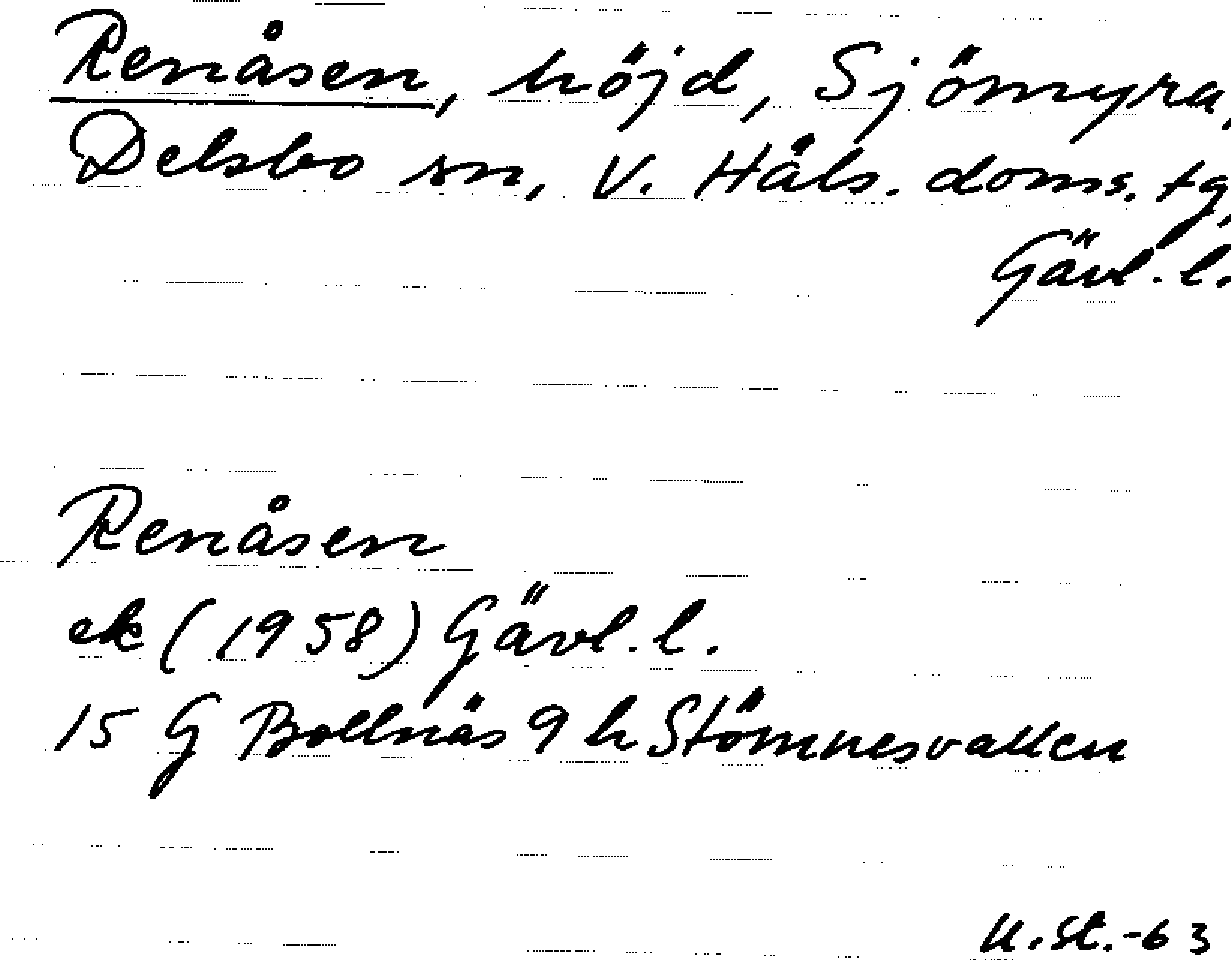 Renåsen, höjd, Sjömyra,
Delsbo sn, V. Häls. doms. tg,
Gävl. l.
Renåsen
ek (1958) Gävl. l.
15 G Bollnäs 9 h Stömnesvallen
U. St. -63